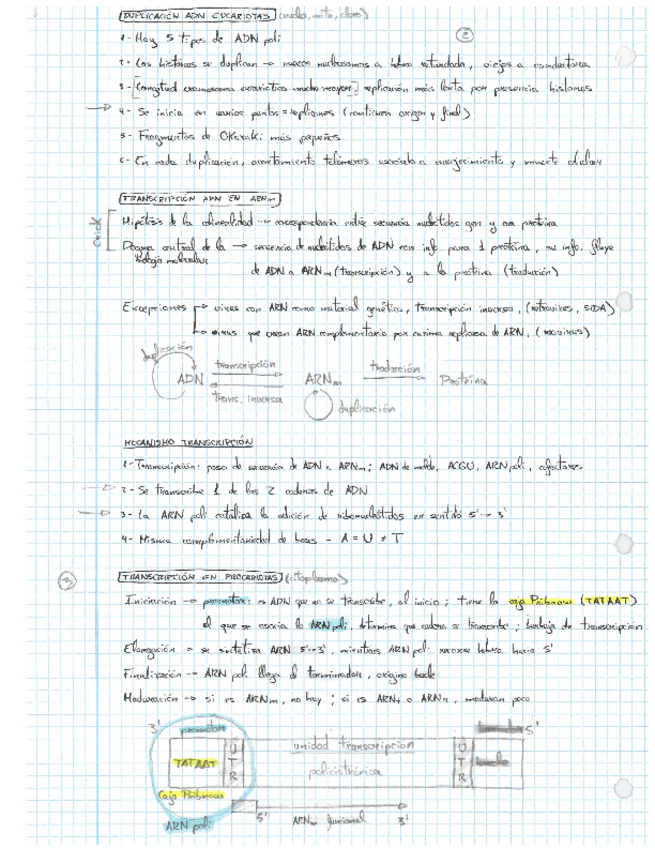 DUPLICACIÓN ADN EUCARIOTAS (núcleo, mito, cloro)
2
1- Hay 5 tipos de ADN poli
2- Las histonas se duplican → nuevos nucleosomas a hebra retardada, viejos a conductora
3- [Longitud cromosoma eucariótico mucho mayor] replicación más lenta por presencia histonas
→ 4- Se inicia en varios puntos = replicones (contienen origen y final)
5- Fragmentos de Okazaki más pequeños
6- En cada duplicación, acortamiento telómeros asociado a envejecimiento y muerte celular
TRANSCRIPCIÓN ADN EN ARNm
Crick
Hipótesis de la colinealidad → correspondencia entre secuencia nucleótidos gen y aa proteína
Dogma central de la → secuencia de nucleótidos de ADN con info para 1 proteína, su info. fluye
Biología molecular
de ADN a ARNm (transcripción) y a la proteína (traducción)
Excepciones → virus con ARN como material genético, transcripción inversa, (retrovirus, SIDA)
→ virus que crean ARN complementario por enzima replicasa de ARN, (
duplicación
ADN transcripción ARNm traducción Proteína
trans. inversa
duplicación
MECANISMO TRANSCRIPCIÓN
1- Transcripción: paso de secuencia de ADN a ARNm; ADN de molde, ACGU, ARN poli, cofactores
→ 2- Se transcribe 1 de las 2 cadenas de ADN
→ 3- La ARN poli cataliza la adición de ribonucleótidos en sentido 5'→3'
4- Misma complementariedad de bases - A = U ≠ T
3
TRANSCRIPCIÓN EN PROCARIOTAS (citoplasma)
Iniciación → promotor: es ADN que no se transcribe, al inicio; tiene la caja Pribnow (TATAAT)
al que se asocia la ARN poli; determina que cadena se transcribe; burbuja de transcripción
Elongación → se sintetiza ARN 5'→3', mientras ARN poli recorre hebra hacia 5'
Finalización → ARN poli llega al terminador, origina bucle
Maduración → si es ARNm, no hay; si es ARNt o ARNr, maduran poco
3' promotor 5'
TATAAT UTR unidad transcripción UTR bucle
policistrónica
Caja Pribnow
ARN poli 5' ARNm funcional 3'